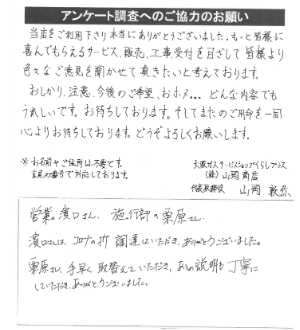 アンケート調査へのご協力のお願い
当店をご利用下さり本当にありがとうございました。もっと皆様に
喜んでもらえるサービス、販売、工事受付を目ざして皆様より
色々なご意見を聞かせて頂きたいと考えております。
おしかり、注意、今後のご希望、おホメ... どんな内容でも
うれしいです。お待ちしております。そしてまたのご用命を一同
心よりお待ちしております。どうぞよろしくお願いします。
※お名前やご住所は不要です。
大阪ガスサービスショップくらしプラス
(株)山岡商店
代表取締役 山岡
営業 濱口さん、施行部の栗原さん
濱口さんは、コロナの折 調達いただき、ありがとうございました。
栗原さん 手早く 取替えていただき、あとの説明も丁寧に
していただき、ありがとうございました。